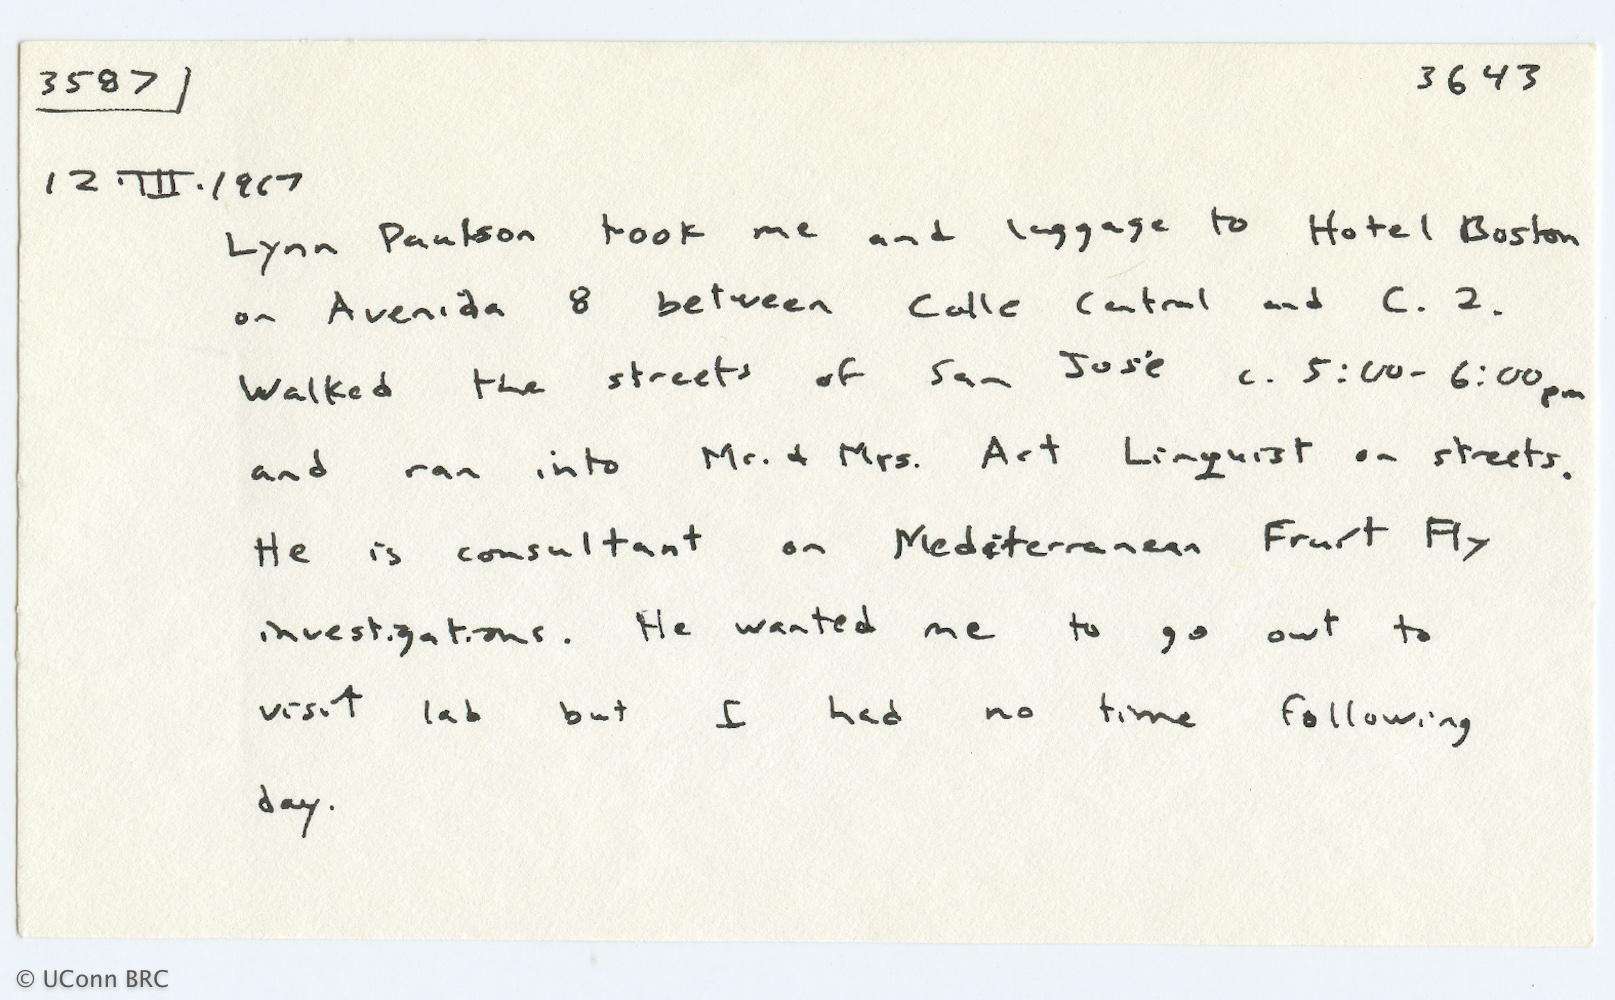 3587
3643
12.III.1967
Lynn Paulson took me and luggage to Hotel Boston
on Avenida 8 between Calle Central and C. 2.
Walked the streets of San José c. 5:00-6:00pm
and ran into Mr. & Mrs. Art Linquist on streets.
He is consultant on Mediterranean Fruit Fly
investigations. He wanted me to go out to
visit lab but I had no time following
day.
© UConn BRC